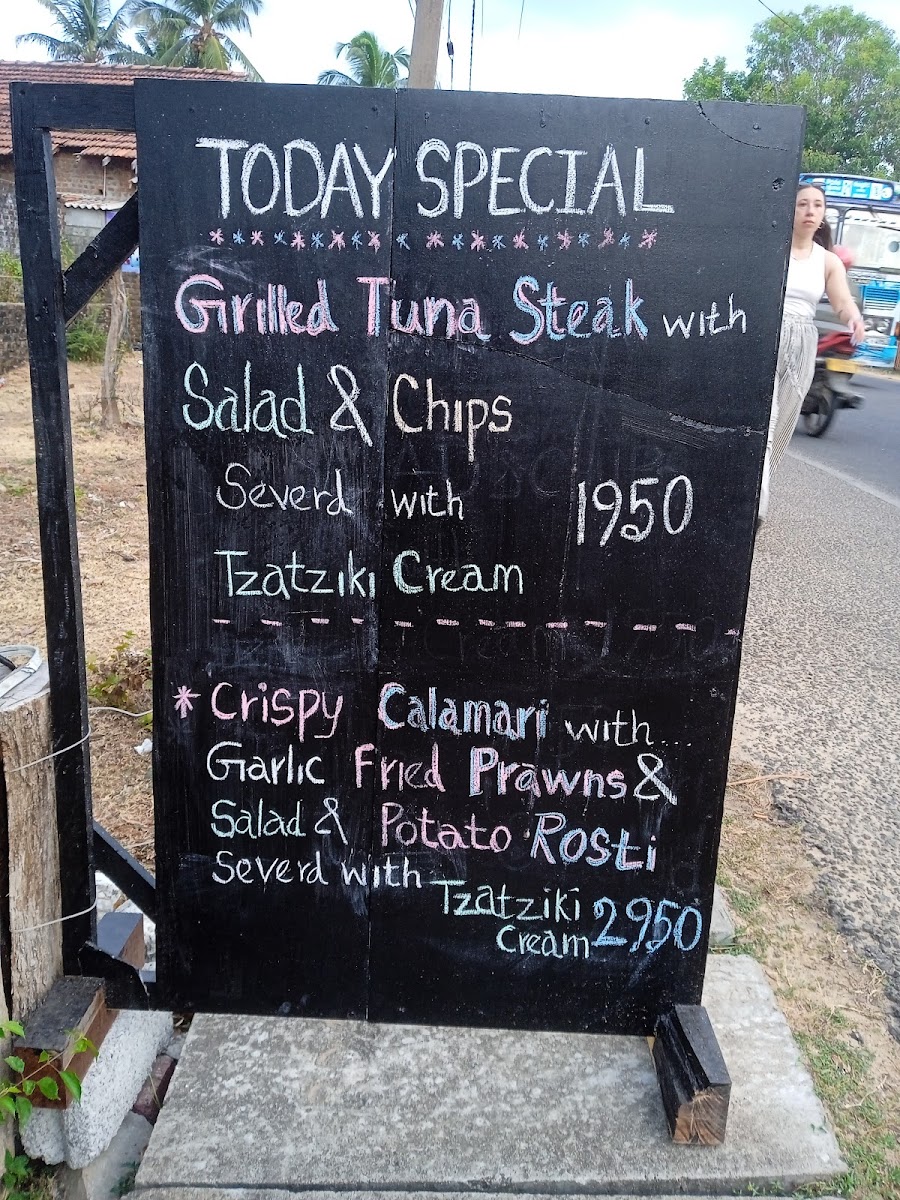 TODAY SPECIAL
Grilled Tuna Steak with
Salad & Chips
Severd with 1950
Tzatziki Cream
* Crispy Calamari with....
Garlic Fried Prawns &
Salad & Potato Rosti
Severd with Tzatziki
Cream 2950